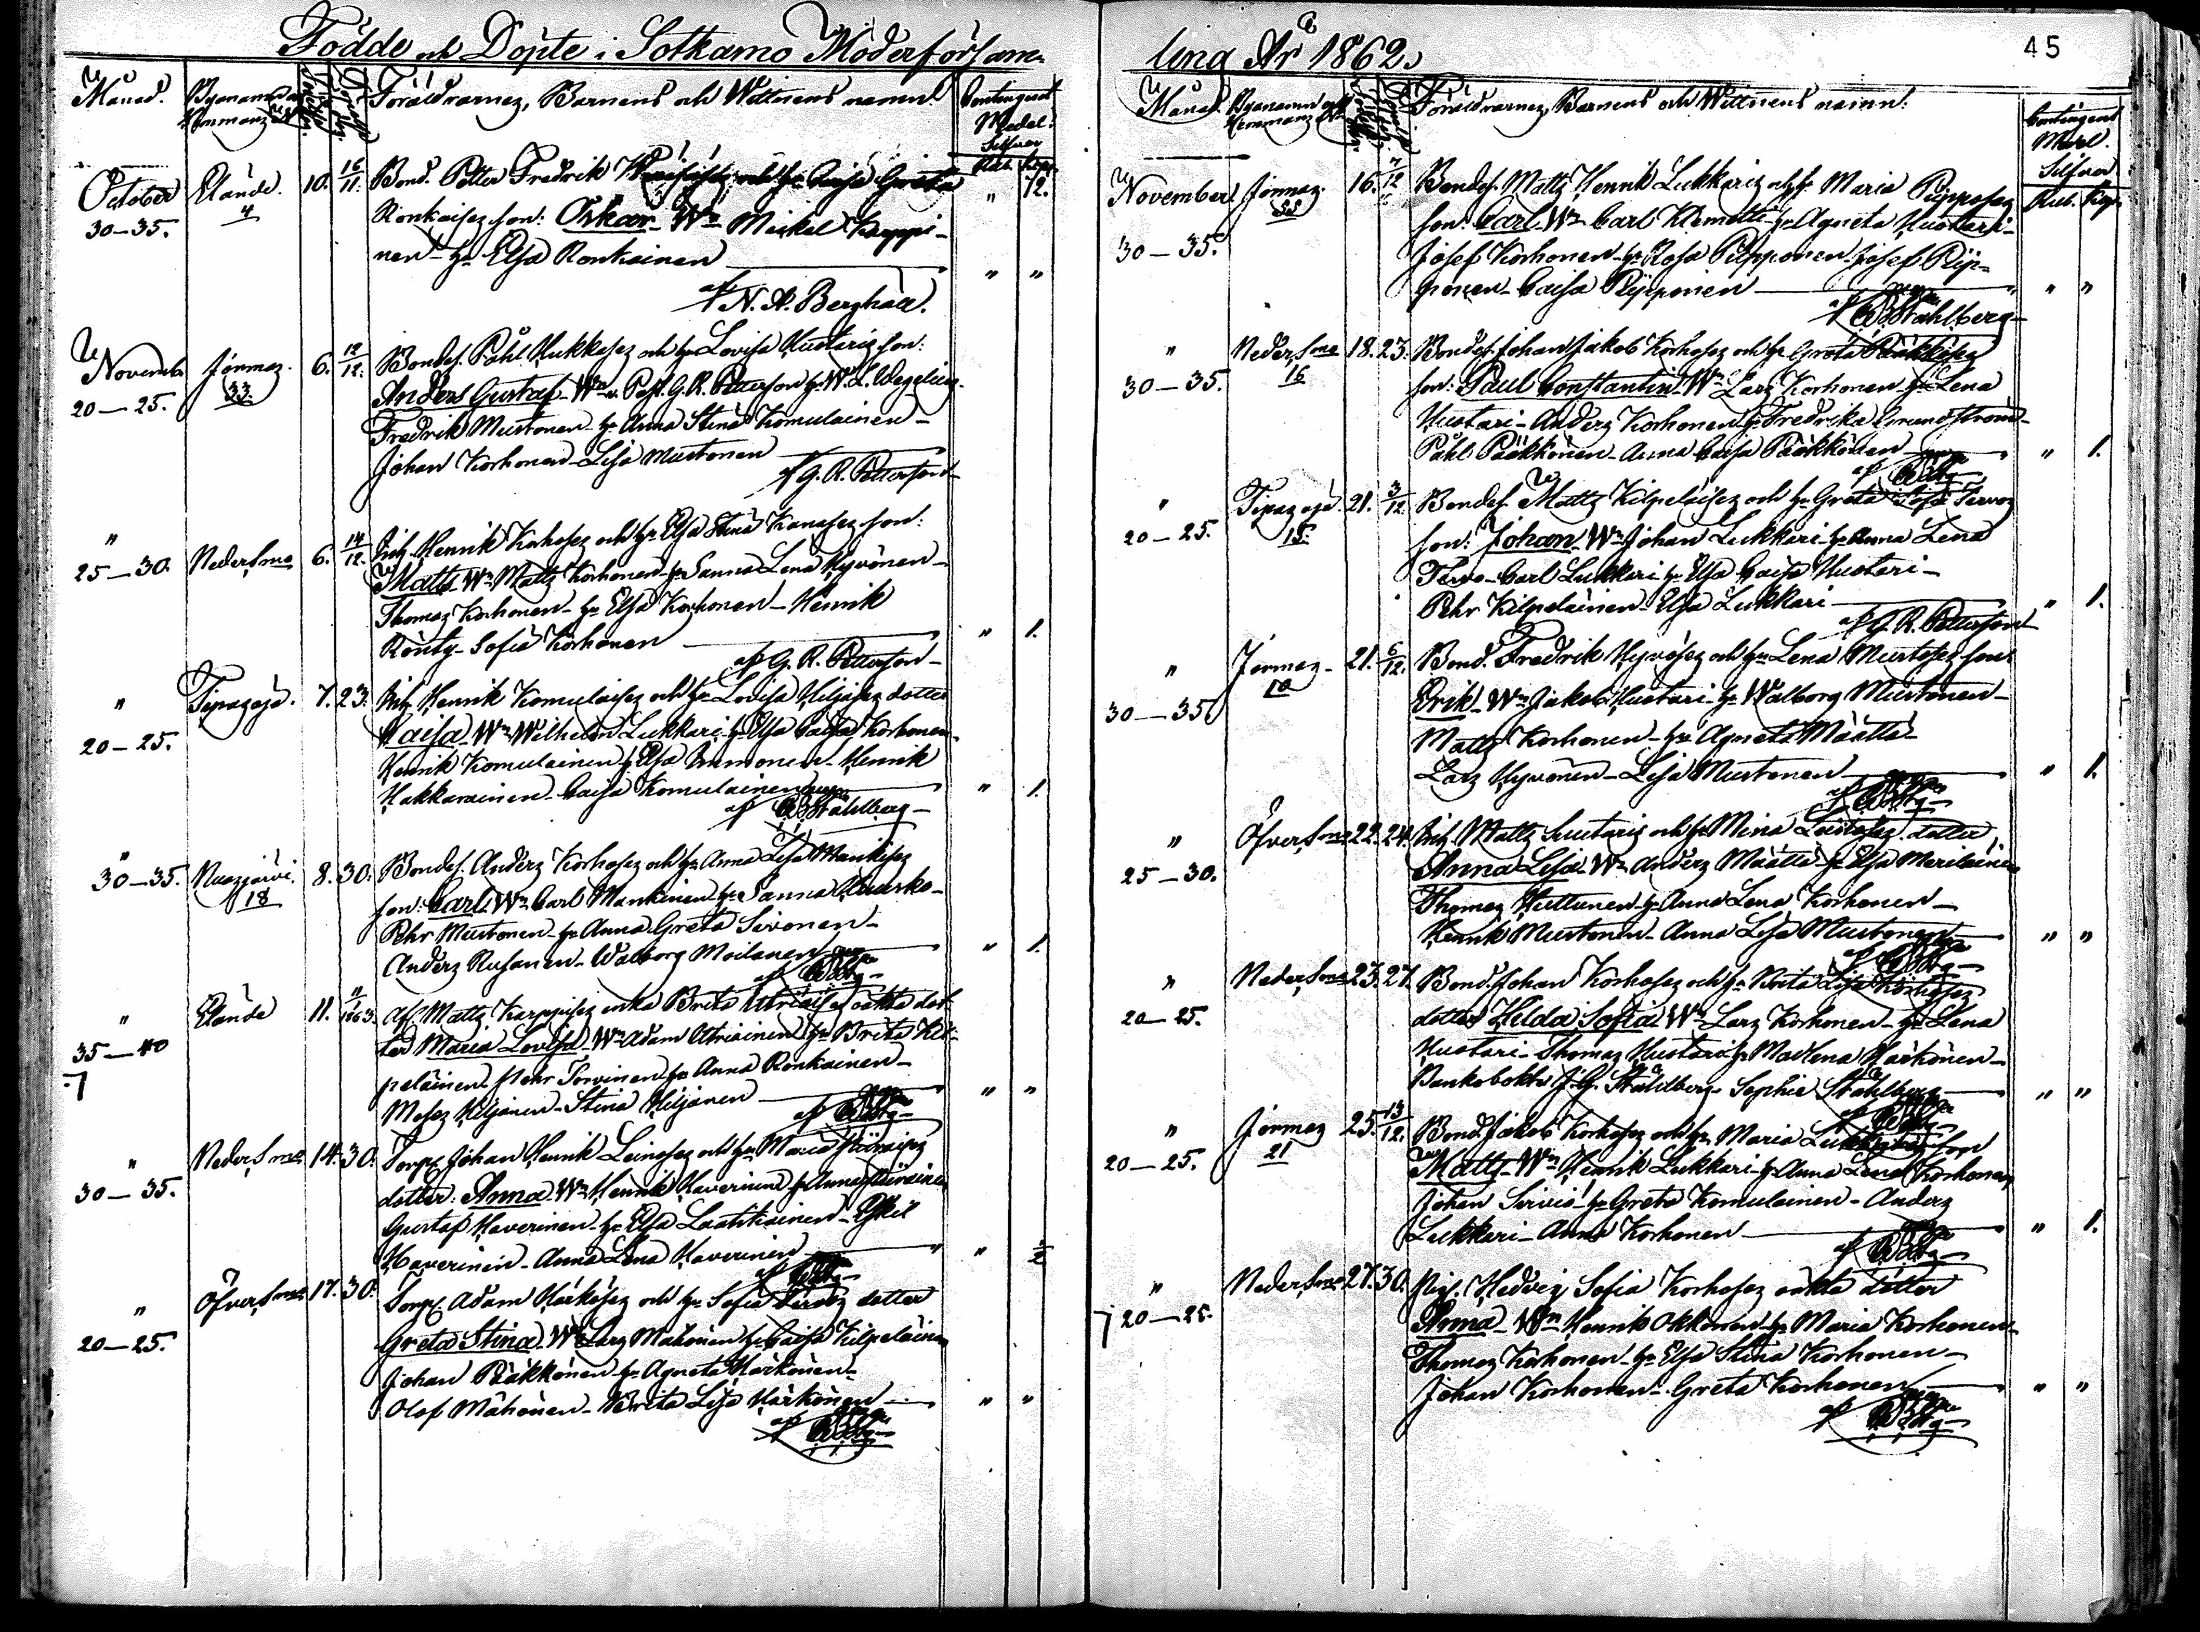 Födde och Döpte i Sotkamo Moderförsam-
Månad.
Föräldrarnez, Barnens och Wittnens namn.
Contingent
Medel.
Silfver
Rub. Kop.
October
30-35.
Elände.
4
10.
16/11.
Bond. Petter Fredrik och hu Caisa Greta
Ronkaisez son: Oskar. Wn Mickel Karppi-
nen - hu Elsa Ronkainen
" 12.
" "
af N. A. Berghäll.
Novemb.
20-25.
Jormaz.
33
6.
12/12.
Bondes. Påhl Hukkasez och hu Lovisa Hustariz son:
Anders Gustaf. Wn v. Past. G. R. Petterson hu W. L. Wegelius
Fredrik Mustonen - hu Anna Stina Komulainen -
Johan Korhonen - Lisa Mustonen
af G. R. Petterson
"
25-30.
Neder Smo
6.
14/12.
Inh. Henrik Korhosez och hu Elsa Stina Kanasez son:
Matts. Wn Mattz Korhonen - hu Sanna Lena Hyvönen -
Thomaz Korhonen - hu Elsa Korhonen - Henrik
Ronty - Sofia Korhonen
" 1.
af G. R. Petterson -
"
20-25.
Tipazoja.
7. 23.
Inh. Henrik Komulaisez och hu Lovisa Hiljasez dotter
Caisa. Wn Wilhelm Lukkari - hu Elsa Caisa Korhonen
Henrik Komulainen - hu Elsa Immonen - Henrik
Hakkarainen - Caisa Komulainen
" 1.
af Ståhlberg -
"
30-35.
Nuazjärvi.
18
8. 30.
Bondes. Anderz Korhosez och hu Anna Lisa Mankisez
son: Carl. Wn Carl Mankinen - hu Sanna
Pehr Mustonen - hu Anna Greta Sironen -
Anderz Rusanen - Walborg Moilanen
" 1.
af Stbg -
"
35-40
7
Elände
11.
11/1863.
Afl. Mattz Karppisez enka Brita Atriaisez oäkta dot-
ter Maria Lovisa. Wn Adam Atriainen - hu Brita Kil-
peläinen - Pehr Torvinen - hu Anna Ronkainen -
Mosez Hiljanen - Stina Hiljanen
" "
af Stbg -
"
30-35.
Neder Smo
14. 30.
Torp. Johan Henrik Leinosez och hu Maria
dotter: Anna. Wn Henrik Haverinen - hu Anna
Gustaf Haverinen - hu Elsa Laatikainen - Eskil
Haverinen - Anna Lena Haverinen
" ½
af Stbg -
"
20-25.
Öfver Smo
17. 30.
Torp. Adam Härkösez och hu Sofia dotter
Greta Stina. Wn Larz Mähönen - hu Caisa Kilpeläinen
Johan Pääkkönen - hu Agneta Härkönen -
Olof Mähönen - Brita Lisa Härkönen
" "
af Stbg -
ling År 1862.
45
Månad.
Byanamn och
Hemmanz No
Föräldrarnez, Barnens och Wittnens namn:
Contingent
Medel.
Silfver
Rub. Kop.
November
30-35.
Jormaz.
55
16.
Bondes. Mattz Henrik Lukkariz och hu Maria Piipposez
son: Carl. Wn Carl Klemetti - hu Agneta Hustari -
Josef Korhonen - hu Rosa Piipponen - Josef Piip-
ponen - Caisa Piipponen
" "
af Ståhlberg -
"
30-35.
Neder Smo
16
18. 23.
Bondes. Johan Jakob Korhosez och hu Greta Pääkkösez
son: Paul Constantin. Wn Larz Korhonen - hu Lena
Hustari - Anderz Korhonen - hu Fredrika Grundström -
Påhl Pääkkönen - Anna Caisa Pääkkönen
" 1.
af Stbg -
"
20-25.
Tipazoja.
15.
21.
3/12.
Bondes. Mattz Kilpeläisez och hu Greta Sofia Tervoz
son: Johan. Wn Johan Lukkari - hu Anna Lena
Tervo - Carl Lukkari - hu Elsa Caisa Hustari -
Pehr Kilpeläinen - Elsa Lukkari
" 1.
af G. R. Petterson
"
30-35.
Jormaz -
10
21.
6/12.
Bond. Fredrik Hyvösez och hu Lena Mustosez son:
Erik. Wn Jakob Hustari - hu Walborg Mustonen -
Mattz Korhonen - hu Agneta Määttä -
Larz Hyvönen - Lisa Mustonen
" 1.
af Stbg -
"
25-30.
Öfver Smo
22. 24.
Inh. Mattz Hustariz och hu Mina dotter
Anna Lisa. Wn Anderz Määttä - hu Elsa Meriläinen
Thomaz Huttunen - hu Anna Lena Korhonen -
Henrik Mustonen - Anna Lisa Mustonen
" "
af Stbg -
"
20-25.
Neder Smo
23. 27.
Bond. Johan Korhosez och hu Brita Lisa Korhosez
dotter Helda Sofia. Wn Larz Korhonen - hu Lena
Hustari - Thomaz Hustari - hu Madlena Härkönen -
J. G. Ståhlberg - Sophie Ståhlberg
" "
af Stbg -
"
20-25.
Jormaz
21
25.
13/12.
Bond. Jakob Korhosez och hu Maria Lukkariz son
Mattz. Wn Henrik Lukkari - hu Anna Lena Korhonen
Johan Sirviö - hu Greta Komulainen - Anderz
Lukkari - Anna Korhonen
" 1.
af Stbg -
"
7 20-25.
Neder Smo
27. 30.
Pig. Hedvig Sofia Korhosez oäkta dotter
Anna. Wn Henrik Okkonen - hu Maria Korhonen -
Thomaz Korhonen - hu Elsa Stina Korhonen -
Johan Korhonen - Greta Korhonen
" "
af Stbg -